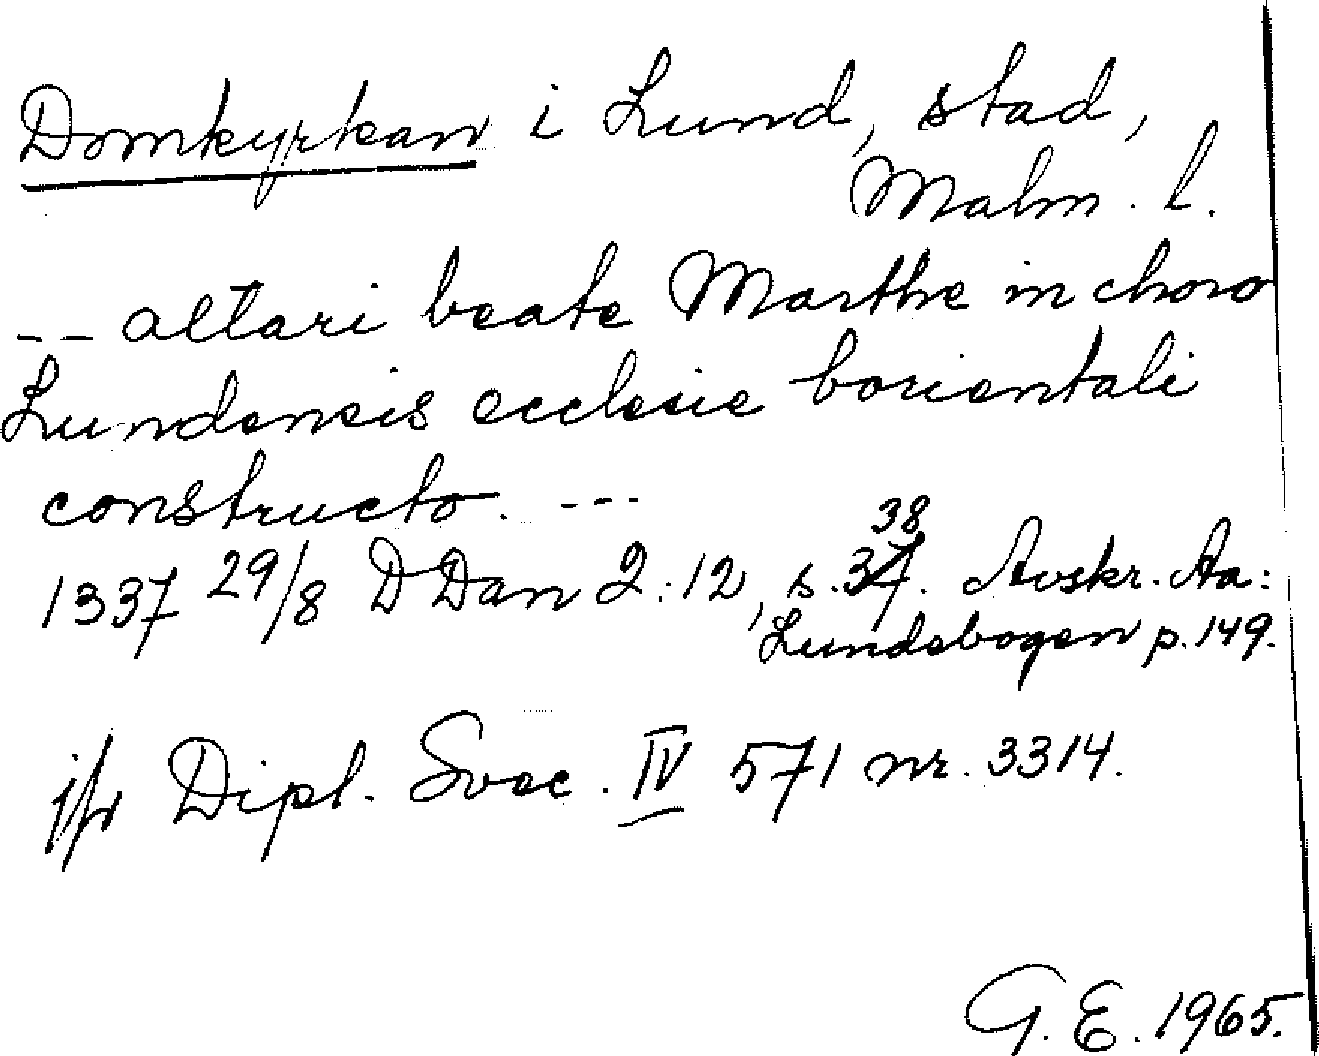 Domkyrkan i Lund, stad,
Malm. l.
-- altari beate Marthe in choro
Lundensis ecclesie borientali
constructo. ---
1337 29/8 DDan 2:12, s. 37. 38 Avskr. Aa:
Lundebogen p. 149.
jfr Dipl. Svec. IV 571 nr. 3314.
G. E. 1965.